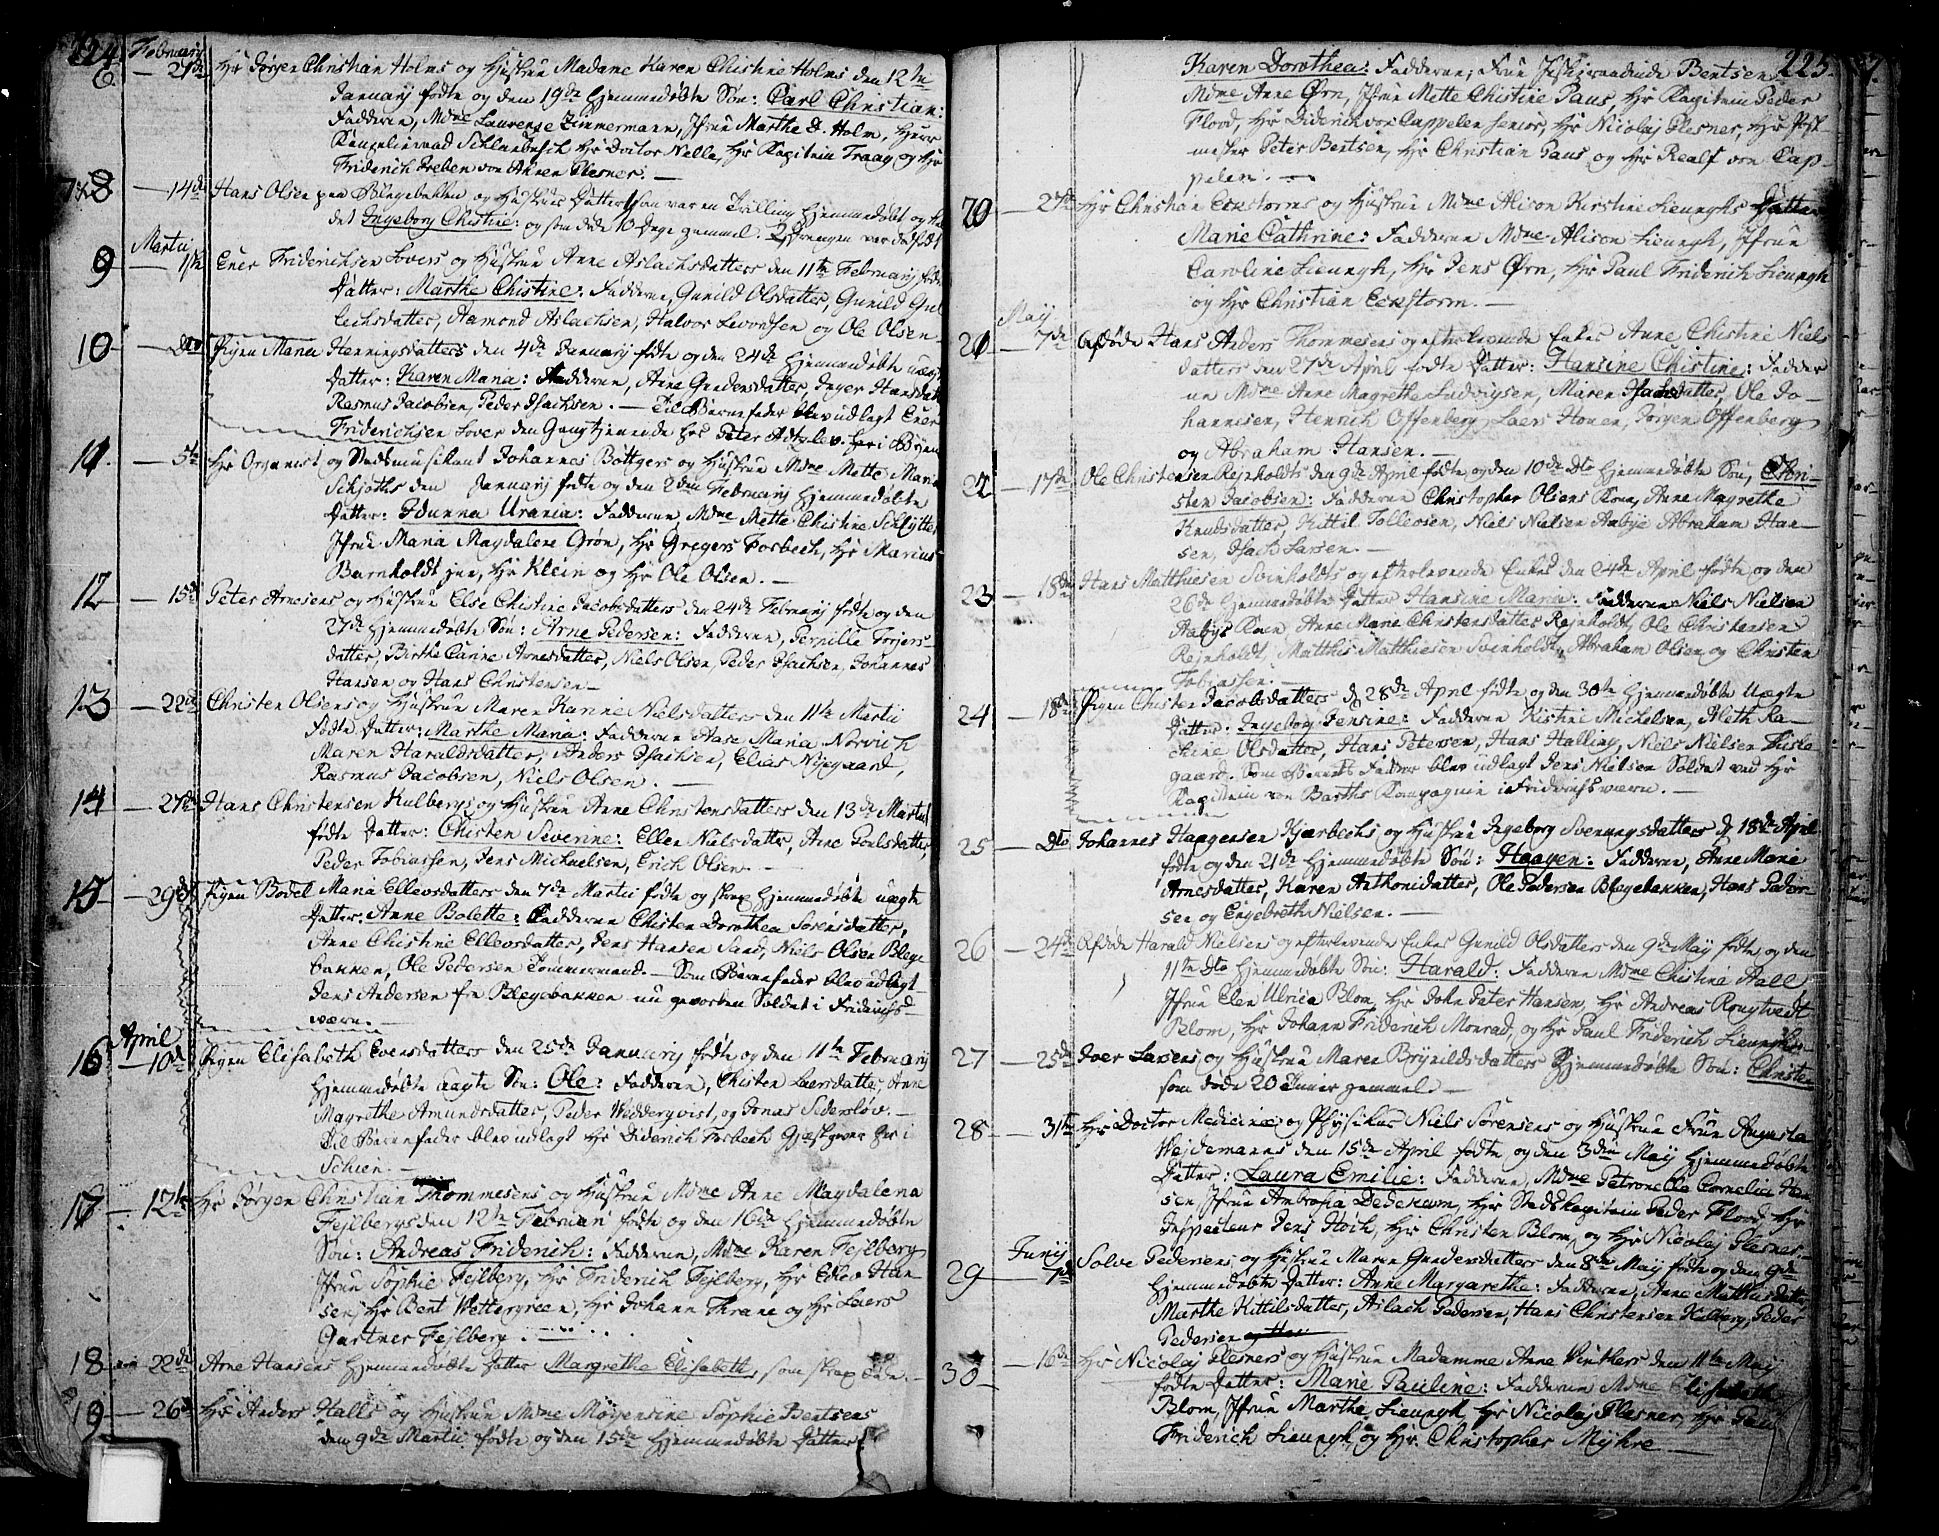 224
February
6 — 21de Hr Jørgen Christian Holms og Hustrue Madame Karen Chistine Holms den 12te
Januarij fødte og den 19de hjemmedøbte Søn: Carl Christian:
Fadderne, Mdme Laurenze Zimmermann, Jfrue Marthe D. Holm, Herr
Cancelieraad Schlanbusch Hr Doctor Nelle, Hr Kapitein Traag og Hr
Friderich Preben von Ahnen Plesner. —
8 — 14de Hans Olsen paa Blegebakken og Hustrues Datter som var en Trilling hjemmedøbt og
det Ingeborg Chistine: og som døde 10 Dage gammel.
Martii
9 — 1ste Ener Friderichsen Lovers og Hustrue Anne Aslachsdatters den 11te Februarij fødte
Datter: Marthe Chistine: Fadderne, Gunild Olsdatter, Gunild Gul
lechsdatter, Aamond Aslachsen, Halvor Levordsen og Ole Olsen
10 — Dto Pigen Maria Henningsdatters den 4de Januarij fødte og den 24de hjemmedøbte uægte
Datter: Karen Maria: Fadderne, Anne Gundersdatter, Inger Hansdatt
Rasmus Jacobsen, Peder Isachsen. — Til Barnefader blev udlagt Ener
Friderichsen Lover den Gang tjenende hos Peter Adtzlev her i Byen
11. — 5te Hr Organist og Stadsmusikant Johannes Bøttgers og Hustrue Mdme Mette Maria
Schjøths den Januarij fødte og den 2den Februarij hjemmedøbte
Datter: Idunna Urania: Fadderne, Mdme Mette Chistine Schlytter
Jfrue Maria Magdalene Grøn, Hr Gregers Forbech, Hr Marius
Barnholdt jun, Hr Klein og Hr Ole Olsen. —
12 — 15de Peter Arnesens og Hustrue Else Chistine Jacobsdatters den 24de Februarij fødte og den
27de hjemmedøbte Søn: Arne Pedersen: Fadderne, Pernille Torjers-
datter, Birthe Carine Arnesdatter, Niels Olsen, Peder Isachsen, Johannes
Hansen og Hans Christensen —
13 — 22de Christen Olsens og Hustrue Maren Karine Nielsdatters den 11te Martii
fødte Datter: Marthe Maria: Fadderne Aase Maria Norvich
Maren Haraldsdatter, Anders Isachsen, Elias Nyegaard,
Rasmus Jacobsen, Niels Olsen. —
14 — 27de Hans Christensen Kulbergs og Hustrue Anne Christensdatters den 13de Martii
fødte Datter: Chisten Severine: Ellen Nielsdatter, Anne Poulsdatter,
Peder Tobiassen, Jens Michaelsen, Erich Olsen. —
15 — 29de Pigen Bodel Maria Ellevsdatters den 7de Martii fødte og strax hjemmedøbte uægte
Datter, Anne Bolette: Fadderne Chisten Dorothea Sørensdatter,
Anne Chistine Ellevsdatter, Jens Hansen Sand, Niels Olsen Blege
bakken, Ole Pedersen Tømmermand. — Som Barnefader blev udlagt
Jens Andersen fra Blegebakken nu geworben Soldat i Friderichs-
værn. —
April
16 — 10de Pigen Elisabeth Evensdatters den 25de Januarij fødte og den 11te Februarij
hjemmedøbte uægte Søn: Ole: Fadderne, Chisten Laersdatter, Anne
Magrethe Amundsdatter, Peder Wedderqvist, og Jonas Sedersløv. —
Til Barnefader blev udlagt Hr Diderich Forbech Gjestgiver her i
Schien. —
17 — 12te Hr Jørgen Christian Thommesens og Hustrue Mdme Anne Magdalena
Fejlbergs den 12te Februari fødte og den 16de hjemmedøbte
Søn: Andreas Friderich: Fadderne, Mdme Karen Fejlberg
Jfrue Sophie Fejlberg, Hr Friderich Fejlberg, Hr Edlev Han-
sen, Hr Bent Wettergreen, Hr Johann Thrane og Hr Laers
Gartner Fejlberg. —
18 — 22de Arne Hansens hjemmedøbte Datter Margrethe Elisabeth, som strax døde. —
19 — 26de Hr Anders Halls og Hustrue Mdme Mogensine Sophie Bentsens
den 9de Martii fødte og den 15de hjemmedøbte Datter:
225.
Karen Dorothea: Fadderne, Frue Justitsraadinde Bentsen
Mdme Anne Ørn, Jfrue Mette Chistine Paus, Hr Kapitein Peder
Flood, Hr Diderich von Cappelen senior, Hr Nicolaj Plesner, Hr Post
mester Peter Bentsen, Hr Christian Paus og Hr Realf von Cap-
pelen. —
20 — 27de Hr Christian Eckstorms og Hustrue Mdme Alison Kirstine Lieunghs Datter
Marie Cathrine: Fadderne Mdme Alison Lieungh, Jfrue
Caroline Lieungh, Hr Jens Ørn, Hr Paul Friderich Lieungh
og Hr Christian Eckstorm. —
May
21 — 7de Afdøde Hans Anders Thommesens og efterlevende Enkes Anne Chistine Niels
datters den 27de April fødte Datter: Hansine Chistine: Fadder
ne Mdme Anne Magrethe Ludvigsen, Maren Isachsdatter, Ole Jo-
hannisen, Henrich Offenberg, Laers Honen, Jørgen Offenberg
og Abraham Hansen. —
22 — 17de Ole Christensen Rejnholdts den 9de April fødte og den 10de Dto hjemmedøbte Søn, Chri-
sten Jacobsen: Fadderne Christopher Olsens Kone, Anne Magrethe
Knudsdatter, Kittil Tollevsen, Niels Nielsen Aabye Abraham Han-
sen, Isach Larsen. —
23 — 18de Hans Matthiesen Svinholdts og efterlevende Enkes den 24de April fødte og den
26de hjemmedøbte Datter Hansine Maria: Fadderne Niels Nielsen
Aabyes Kone, Anne Marie Christensdatter Rejnholdt, Ole Christensen
Rejnholdt, Matthis Matthiesen Svinholdt, Abraham Olsen og Christen
Tobiassen. —
24 — 18de Pigen Chisten Jacobsdatters d 28de April fødte og den 30te hjemmedøbte Uægte
Datter: Ingeborg Jensine: Fadderne Kistine Mickelsen, Aleth Ka-
thrine Olsdatter, Hans Petersen, Hans Halling, Niels Nielsen Fiske
gaard. Som Barnets Fader blev udlagt Jens Nielsen Soldat ved Hr
Kapitein von Barths Kompagnie i Friderichsværn. —
25 — Dto Johannes Haagensen Kjærbechs og Hustrue Ingeborg Svennungsdatters d 18de April
fødte og den 21de hjemmedøbte Søn: Haagen: Fadderne, Anne Marie
Arnesdatter, Karen Anthonidatter, Ole Pedersen Blegebakken, Hans Peder-
sen og Engebreth Nielsen. —
26 — 24de Afdøde Harald Nielsens og efterlevende Enkes Gunild Olsdatters den 9de Maij fødte og den
11te Dto hjemmedøbte Søn: Harald: Fadderne Mdme Chistine Hall
Jfrue Elen Ulrica Blom, Hr John Peter Hansen, Hr Andreas Rougtvedt
Blom, Hr Johann Friderich Monrad, og Hr Paul Friderich Lieungh. —
27 — 25de Iver Larsens og Hustrue Maren Brynildsdatters hjemmedøbte Søn: Christen
som døde 20 Timer gammel —
28 — 31te Hr Doctor Medicinæ og Physikus Niels Sørensens og Hustrue Frue Augusta
Wejdemanns den 15de April fødte og den 3die Maij hjemmedøbte
Datter: Laura Emilie: Fadderne, Mdme Petronella Cornelia Han
sen, Jfrue Ambrosia Dedekam, Hr Stadskapitein Peder Flood, Hr
Inspecteur Jens Høih, Hr Christen Blom, og Hr Nicolaj Plesner. —
Junij
29 — 7de Solve Pedersens og Hustrue Maren Gundersdatters den 8de Maij fødte og den 9de
hjemmedøbte Datter: Anne Margarethe: Fadderne, Anne Matthisdatter
Marthe Kittilsdatter, Aslach Pedersen, Hans Christensen Kulberg, Peder
Pedersen
30 — 16de Hr Nicolaj Plesners og Hustrue Madamme Anne Winthers den 11te Maij
fødte Datter: Marie Pauline: Fadderne Mdme Elisabeth
Blom, Jfrue Marthe Lieungh, Hr Nicolaj Plesner, Hr Paul
Friderich Lieungh, og Hr. Christopher Myhre —